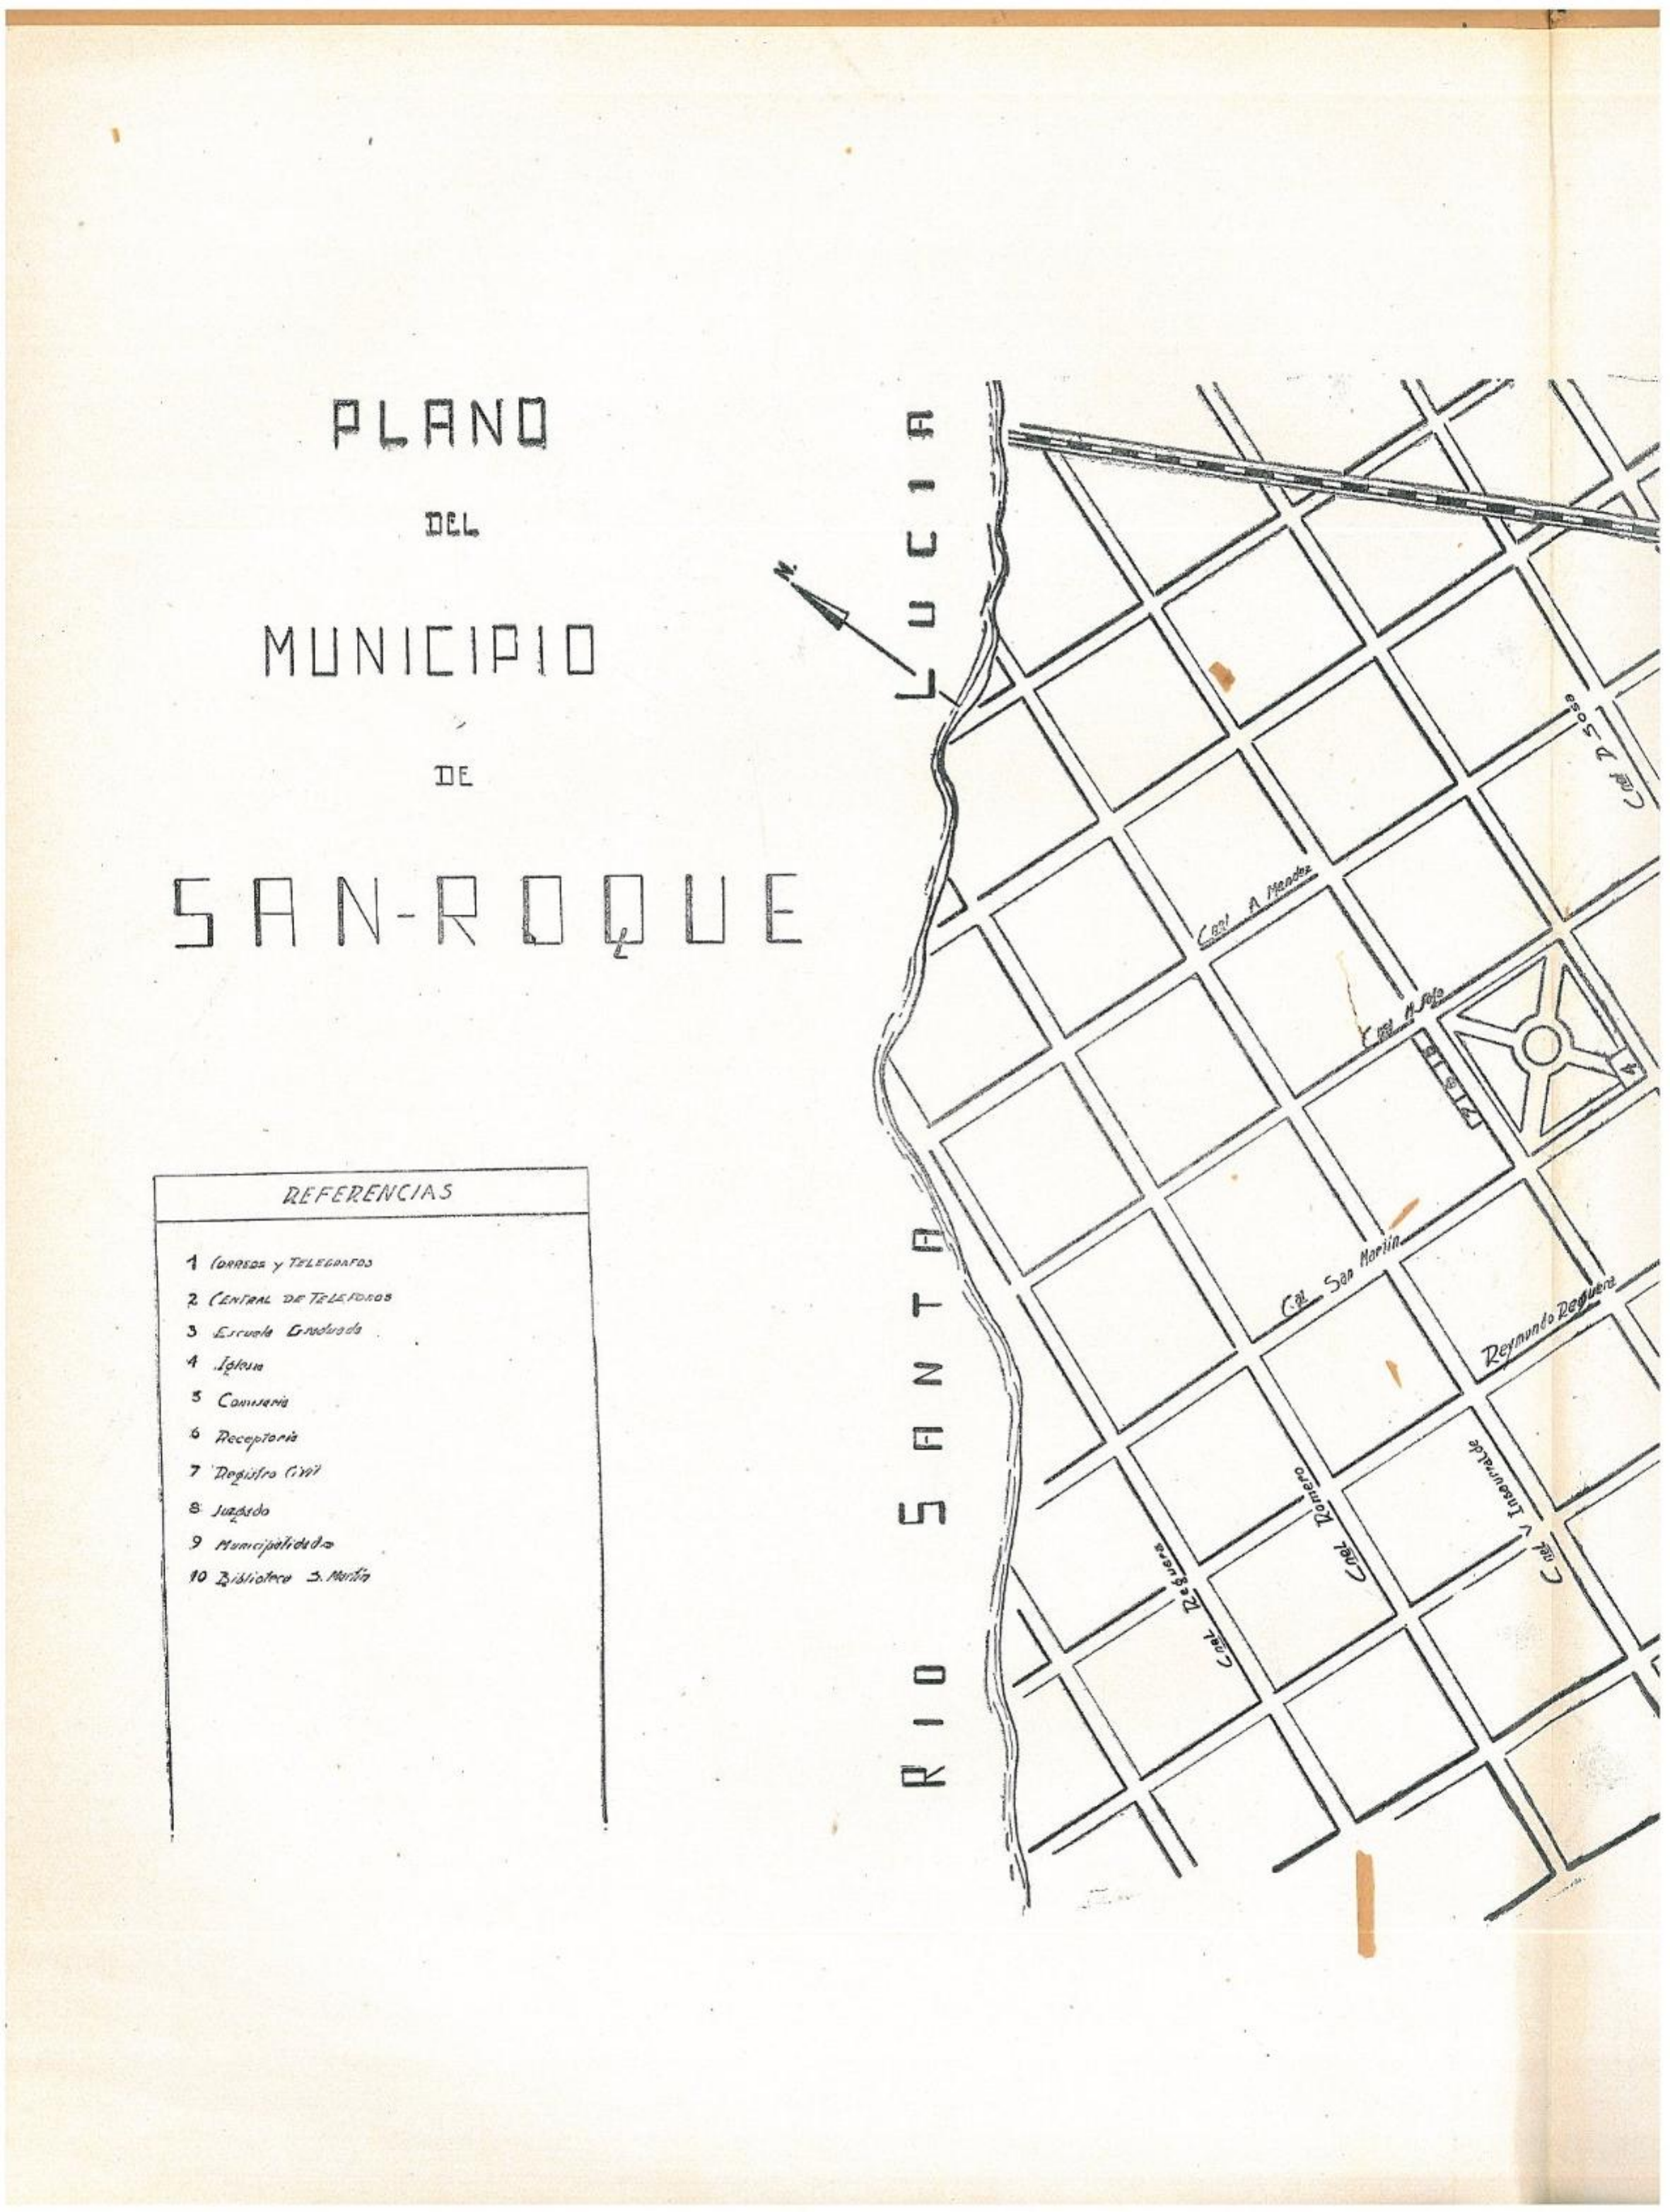 PLANO
DEL
MUNICIPIO
DE
SAN-ROQUE
REFERENCIAS
1 CORREOS y TELEGRAFOS
2 CENTRAL DE TELEFONOS
3 Escuela Graduada
4 Iglesia
5 Comisaria
6 Receptoria
7 Registro Civil
8 Juzgado
9 Municipalidad
10 Biblioteca S. Martín
N.
RIO SANTA LUCIA
Cnel D Sosa
A Mendez
4
San Martín
Reymundo Reguera
Cnel Romero
Cnel V Insaurralde
Cnel Reguera